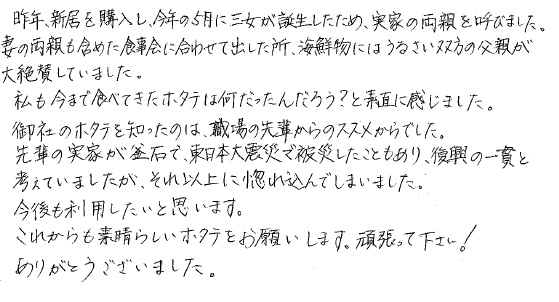 昨年、新居を購入し、今年の5月に三女が誕生したため、実家の両親を呼びました。
妻の両親も含めた食事会に合わせて出した所、海鮮物にはうるさい双方の父親が
大絶賛していました。
私も今まで食べてきたホタテは何だったんだろう?と素直に感じました。
御社のホタテを知ったのは、職場の先輩からのススメからでした。
先輩の実家が釜石で、東日本大震災で被災したこともあり、復興の一貫と
考えていましたが、それ以上に惚れ込んでしまいました。
今後も利用したいと思います。
これからも素晴らしいホタテをお願いします。頑張って下さい!
ありがとうございました。